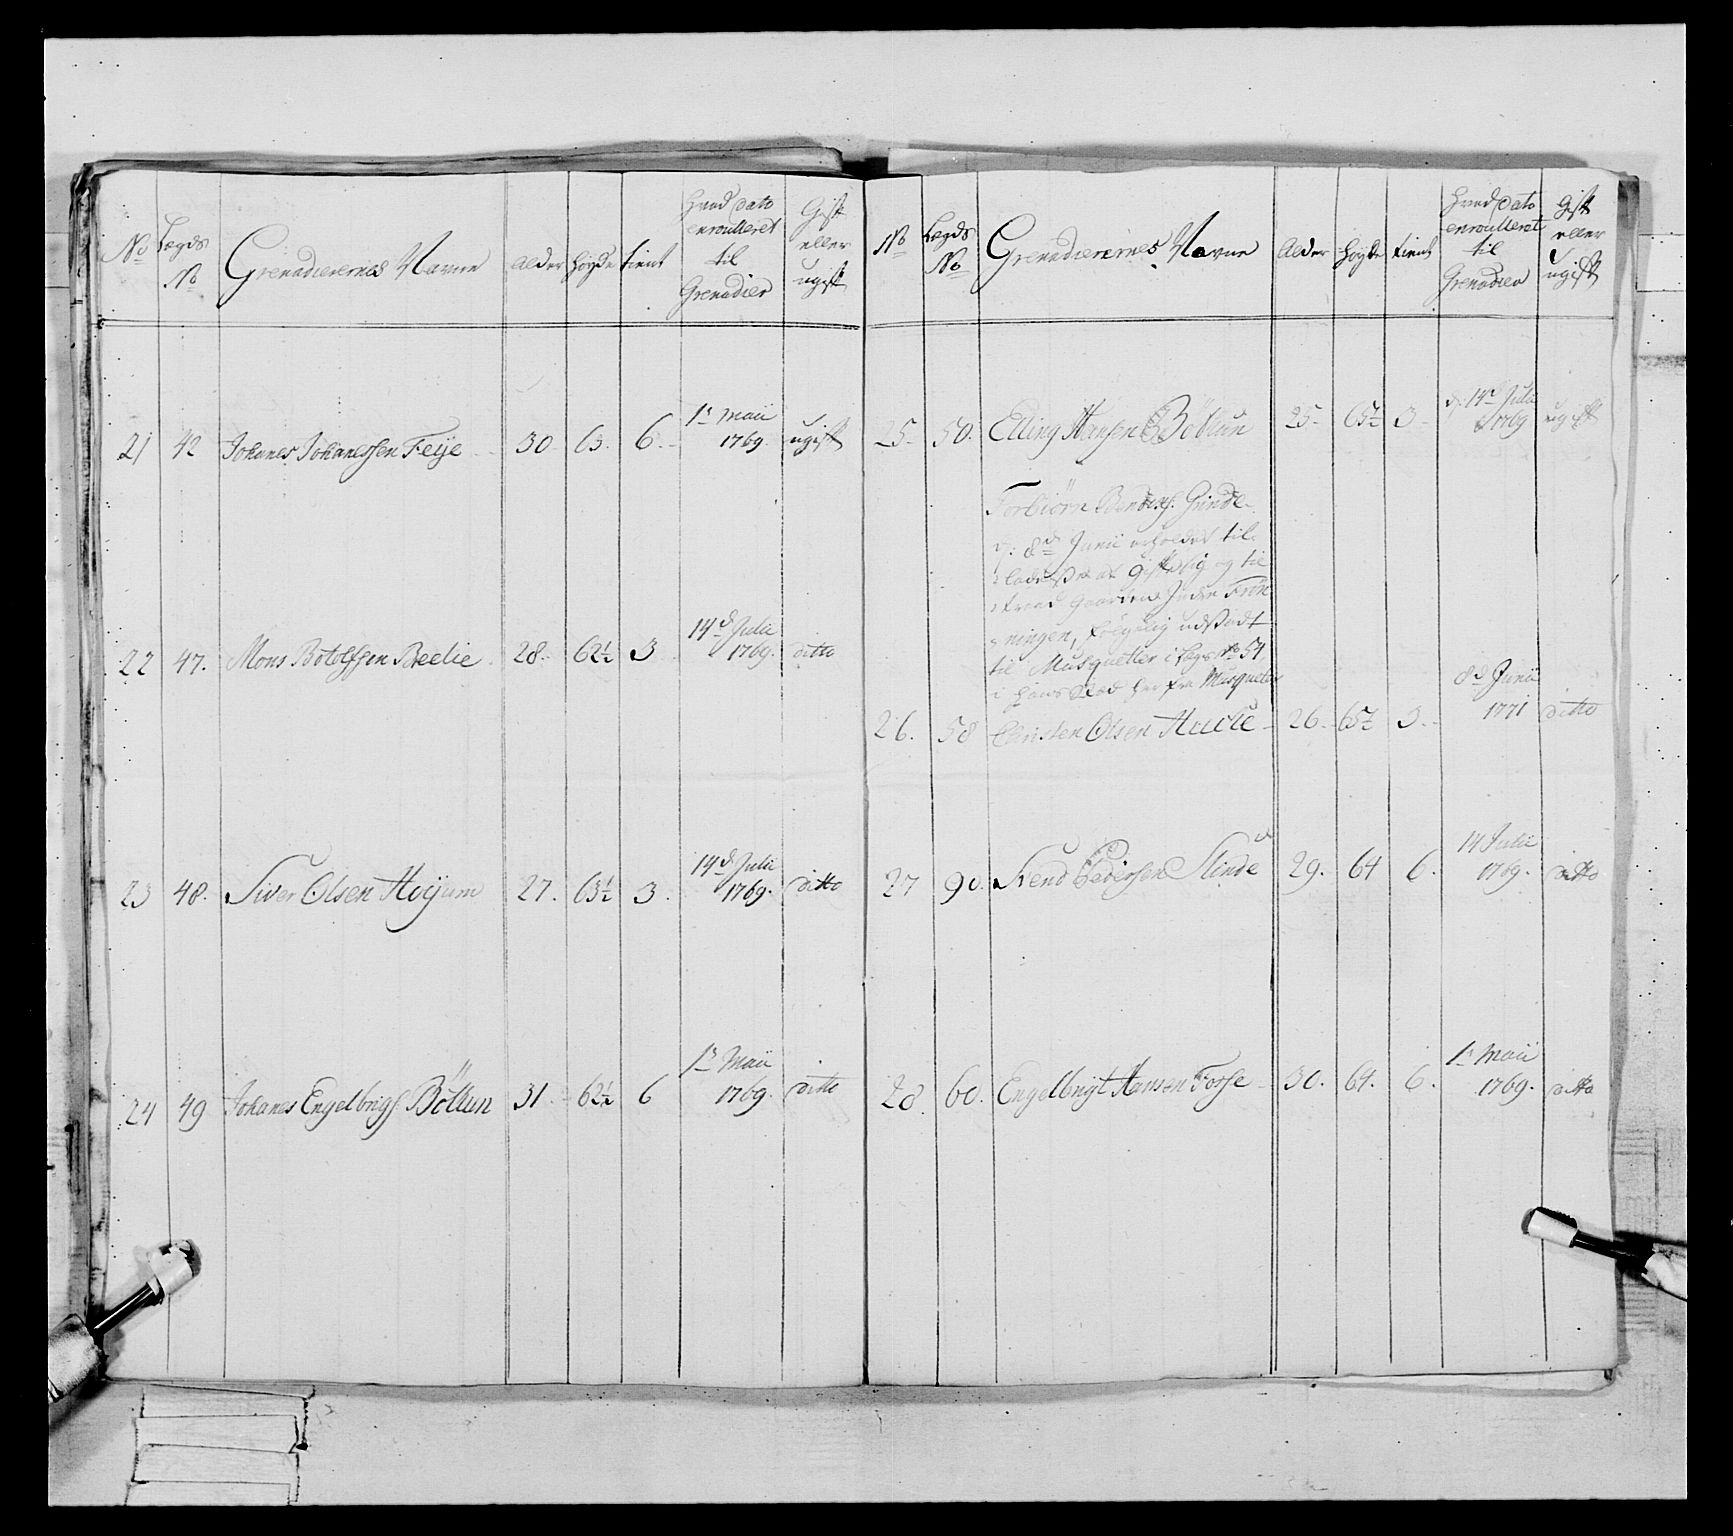 No Lægds No Grenadierernes Navne Alder Høyde tient hvad Dato enroulleret til Grenadier Gift eller ugift
21 42 Johanes Johanessen Feije 30 63. 6. 1ste Maii 1769. ugift
22 47. Mons Botolfssen Beelie 28. 62½ 3 14d Julii 1769. ditto
23 48. Siver Olsen Høijum 27. 63½ 3. 14d Julii 1769. ditto
24 49 Johanes Engelbrigs. Böllun 31. 62½ 6 1ste Maii 1769. ditto
No Lægds No Grenadierernes Navne Alder Høyde tient hvad Dato enroulleret til Grenadier Gift eller ugift
25. 50. Elling Hansen Böllun 25. 65½ 3. d. 14d Julii 1769 ugift
Torbiörn Grinde
d. 8d Junii erholdet til-
ladelse at gifte sig og til
Gaarden Indre Frön
ningen, fölgelig udsadt
til Musqueter i Lægd No 54
i hans Sted her fra Musqueter
26. 58 Christen Olsen 26. 65½ 3. 8d Junii 1771 ditto
27 90. Svend Pedersen Slinde 29. 64 6. 14 Julii 1769. ditto
28 60. Engelbrigt Hansen Fosse 30. 64. 6. 1ste Maii 1769. ditto